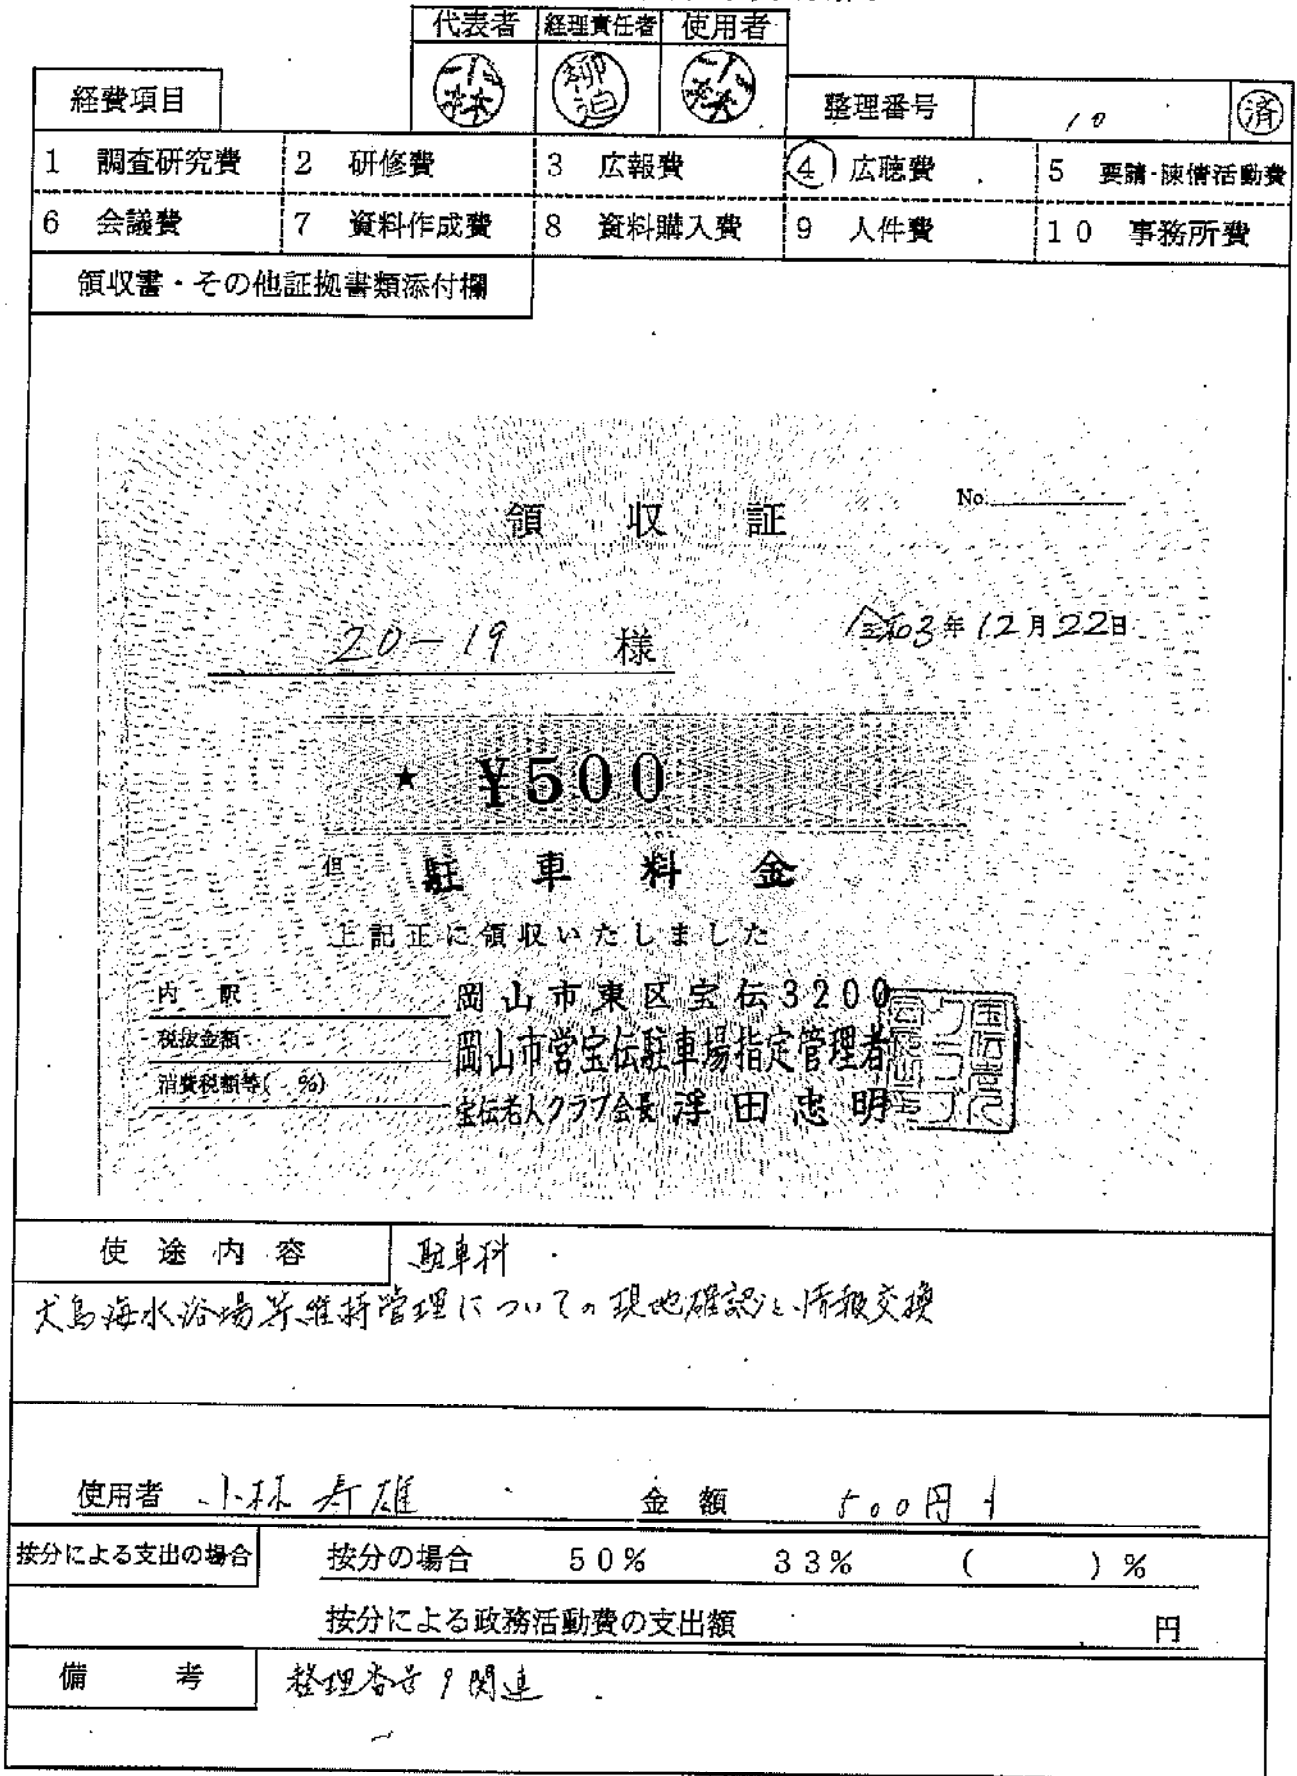 代表者 経理責任者 使用者
小林 柳迫 小林
経費項目 整理番号 10 済
1 調査研究費 2 研修費 3 広報費 4 広聴費 5 要請・陳情活動費
6 会議費 7 資料作成費 8 資料購入費 9 人件費 10 事務所費
領収書・その他証拠書類添付欄
領収証 No.
20-19 様 令和3年12月22日
★ ¥500
但 駐車料金
上記正に領収いたしました
内訳 岡山市東区宝伝3200
税抜金額 岡山市営宝伝駐車場指定管理者
消費税額等( %) 宝伝老人クラブ会長 浮田忠明
使途内容 駐車料
犬島海水浴場等維持管理についての現地確認と情報交換
使用者 小林寿雄 金額 500円
按分による支出の場合 按分の場合 50% 33% ( )%
按分による政務活動費の支出額 円
備考 整理番号9関連